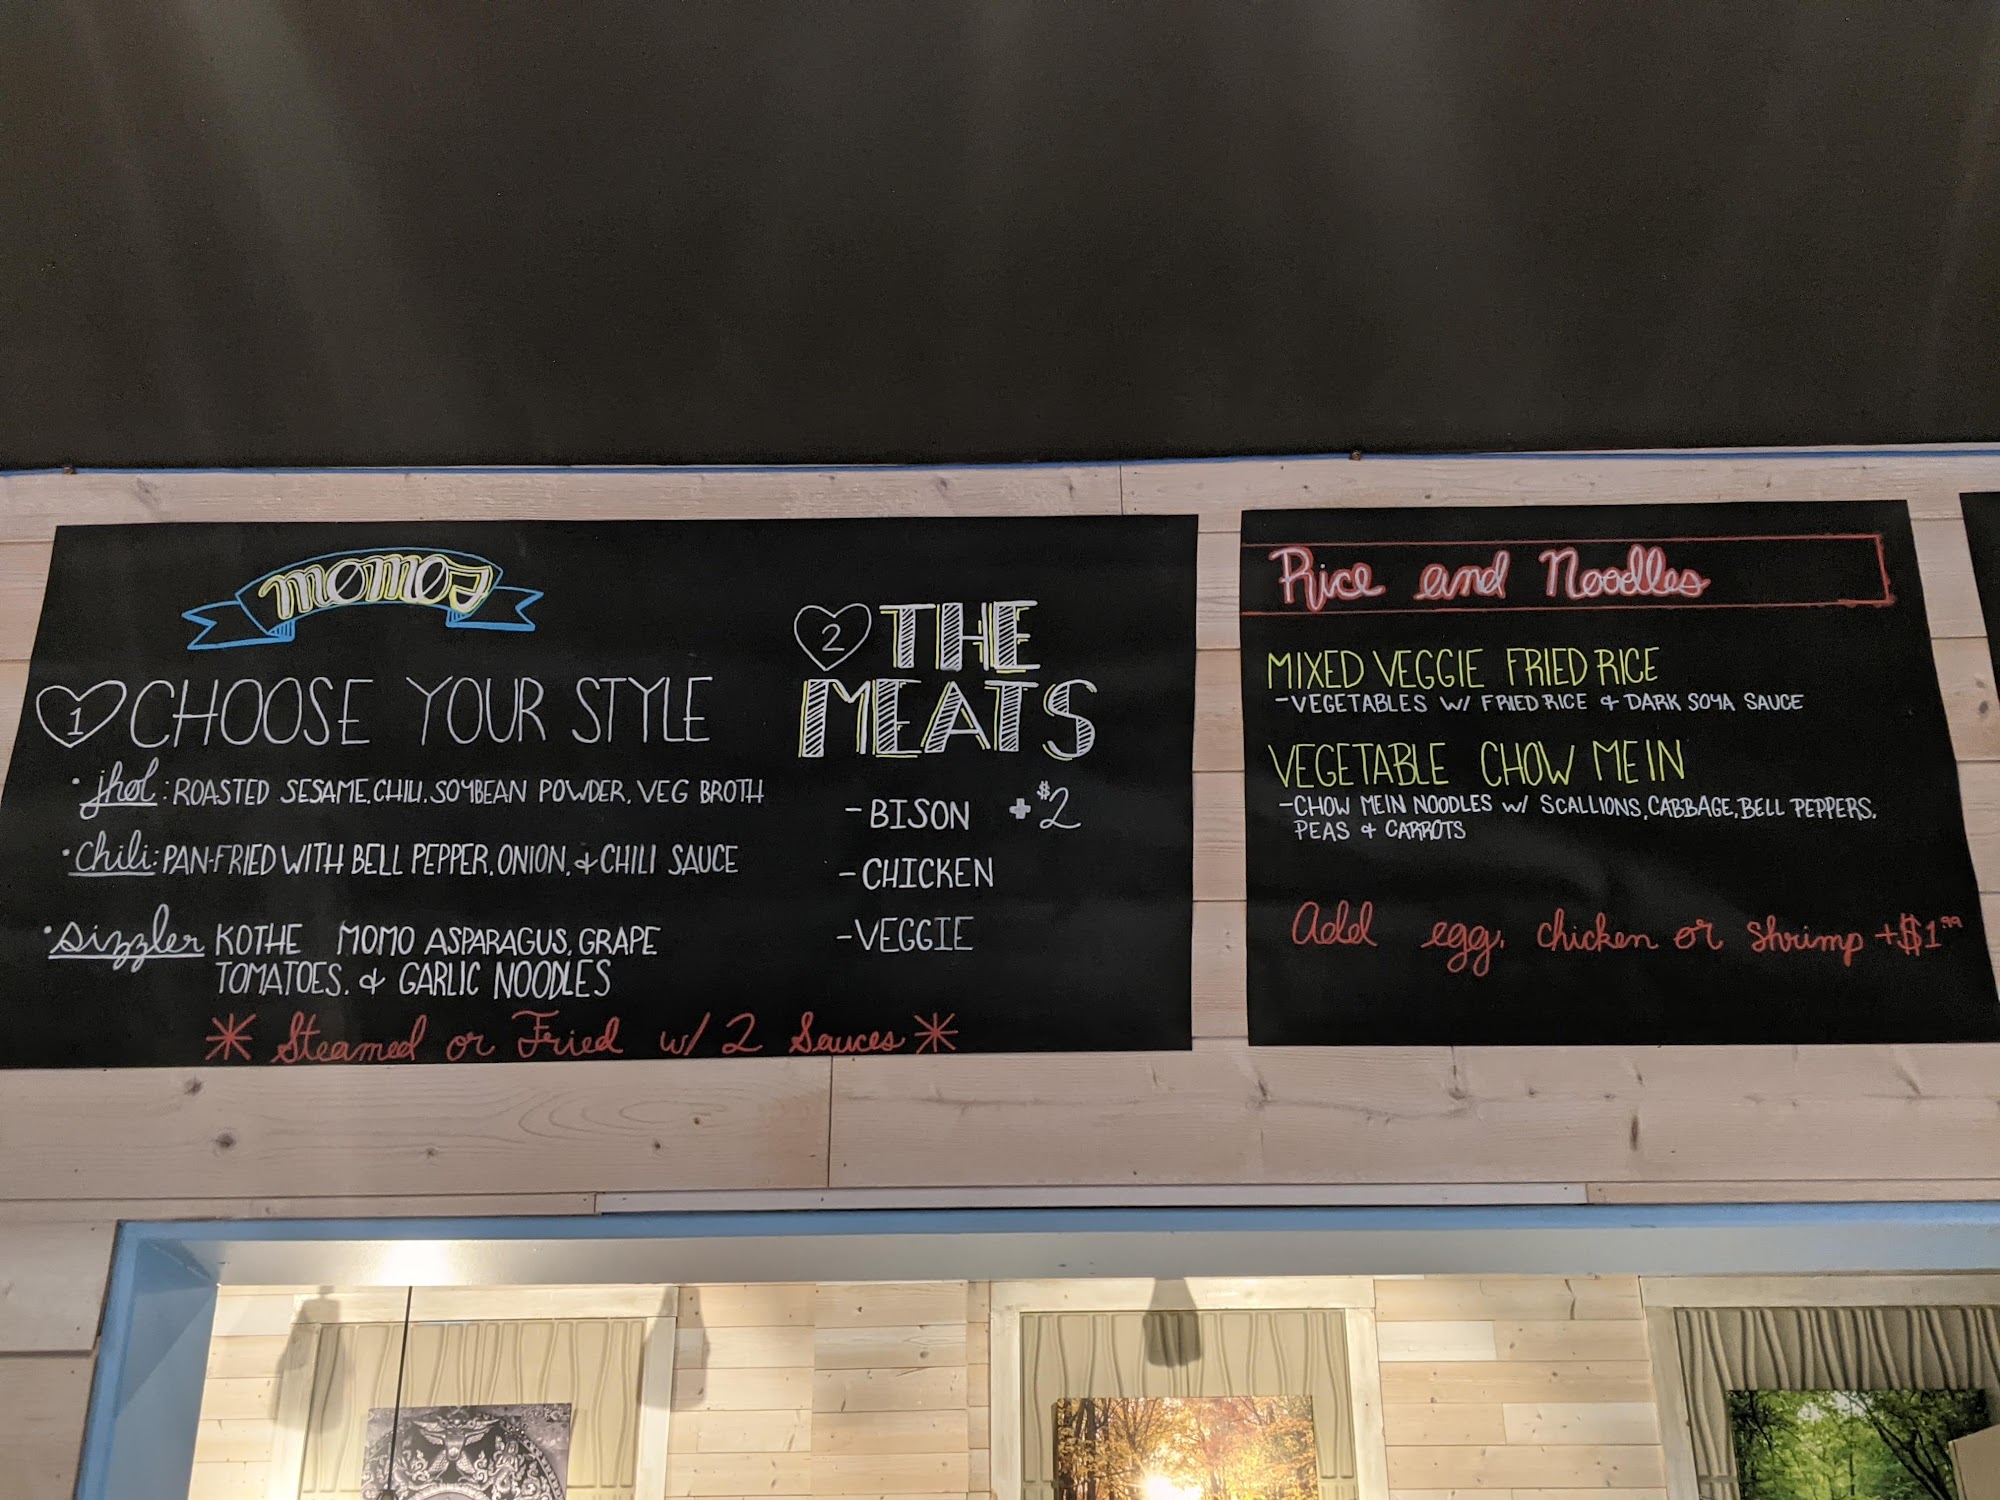 momos
1 CHOOSE YOUR STYLE
• jhol: ROASTED SESAME, CHILI, SOYBEAN POWDER, VEG BROTH
• Chili: PAN-FRIED WITH BELL PEPPER, ONION, & CHILI SAUCE
• Sizzler KOTHE MOMO ASPARAGUS, GRAPE
TOMATOES, & GARLIC NOODLES
* Steamed or Fried w/ 2 Sauces *
2 THE
MEATS
- BISON + $2
- CHICKEN
- VEGGIE
Rice and Noodles
MIXED VEGGIE FRIED RICE
- VEGETABLES W/ FRIED RICE & DARK SOYA SAUCE
VEGETABLE CHOW MEIN
- CHOW MEIN NOODLES W/ SCALLIONS, CABBAGE, BELL PEPPERS,
PEAS & CARROTS
Add egg, chicken or shrimp +$1.99